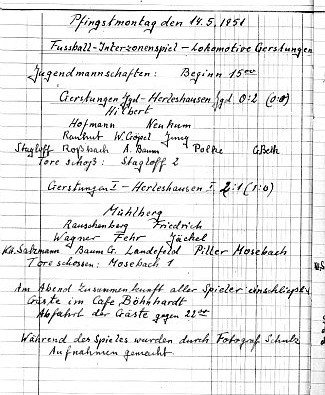 Pfingstmontag den 14.5.1951
Fussball-Interzonenspiel - Lokomotive Gerstungen
Jugendmannschaften: Beginn 15⁰⁰
Gerstungen Jgd - Herleshausen Jgd 0:2 (0:0)
Hilbert
Hofmann Neukum
Raubut W. Göpel Jung
Stagloff Roßbach A. Baum Polke G. Beth
Tore schoß: Stagloff 2
Gerstungen I - Herleshausen I 2:1 (1:0)
Mühlberg
Rauschenberg Friedrich
Wagner Fehr Jäckel
K.H. Salzmann Baum G. Landefeld Piller Mosebach
Tore schossen: Mosebach 1
Am Abend Zusammenkunft aller Spieler einschließl.
Gäste im Cafe Böhnhardt
Abfahrt der Gäste gegen 22⁰⁰
Während des Spieles wurden durch Fotograf Schulz
Aufnahmen gemacht.